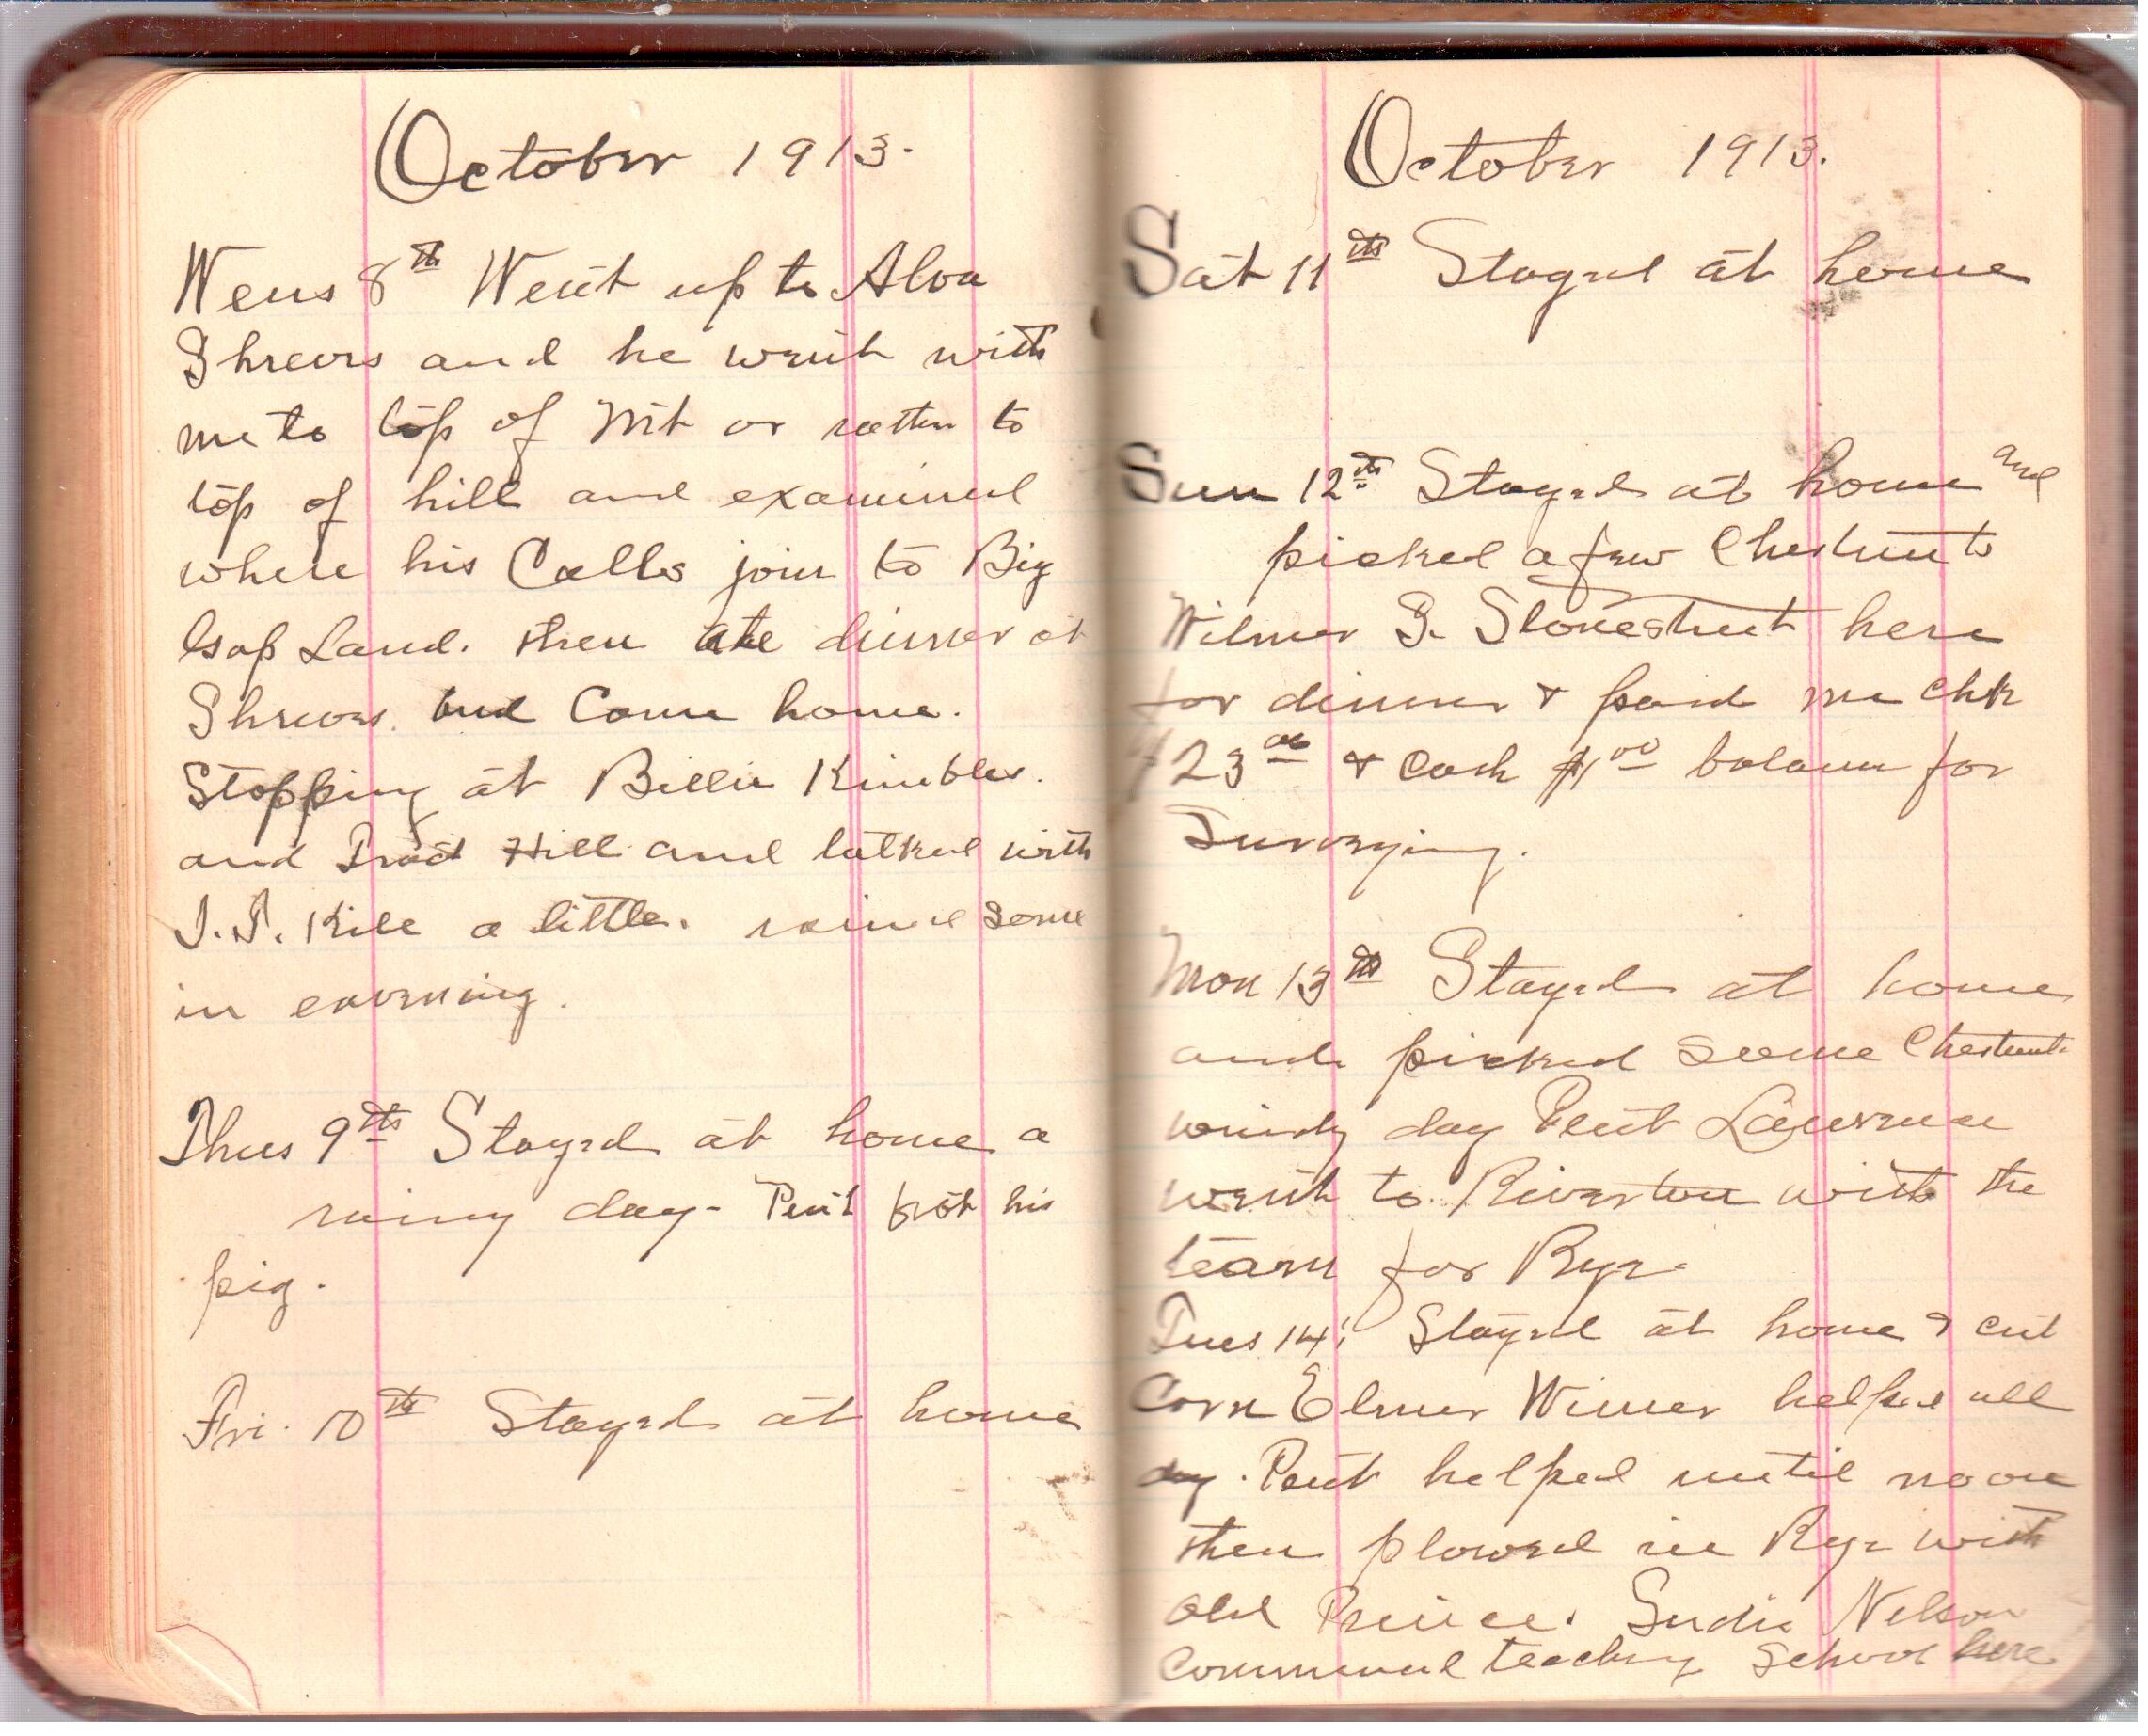 October 1913.
Wens 8th Went up to Alva
Shrevrs and he went with
me to top of Mt or rather to
top of hill and examined
where his Calls join to Big
Gap Land. then ate dinner at
Shrevrs. and Came home.
Stopping at Billie Kimbles.
and Hill and talked with
Kile a little. rained some
in evening.
Thus 9th Stayed at home a
rainy day - Pent his
pig.
Fri. 10th Stayed at home
October 1913.
Sat 11th Stayed at home
Sun 12th Stayed at home and
picked a few Chestnuts
Wilmer S. Stonestreet here
for dinner & paid me Chk
$23 00 & Cash $1 00 balance for
Surveying.
Mon 13th Stayed at home
and picked some Chestnuts
windy day Pent Lawrence
went to Riverton with the
team for Rye.
Tues 14' Stayed at home & cut
Corn Elmer Wimer helped all
day. Pent helped until noon
then plowed in Rye with
Old Prince. Sudie Nelson
Commenced teaching School here